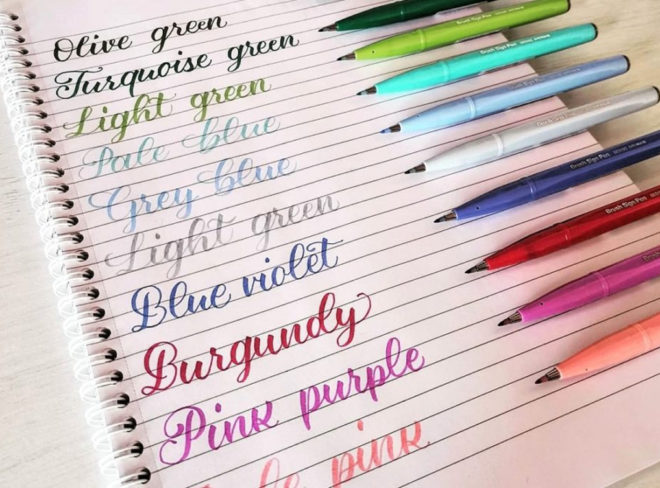 Olive green
Turquoise green
Light green
Pale blue
Grey blue
Light green
Blue violet
Burgundy
Pink purple
pink
Brush Sign Pen
Brush Sign Pen
Brush Sign Pen
Brush Sign Pen